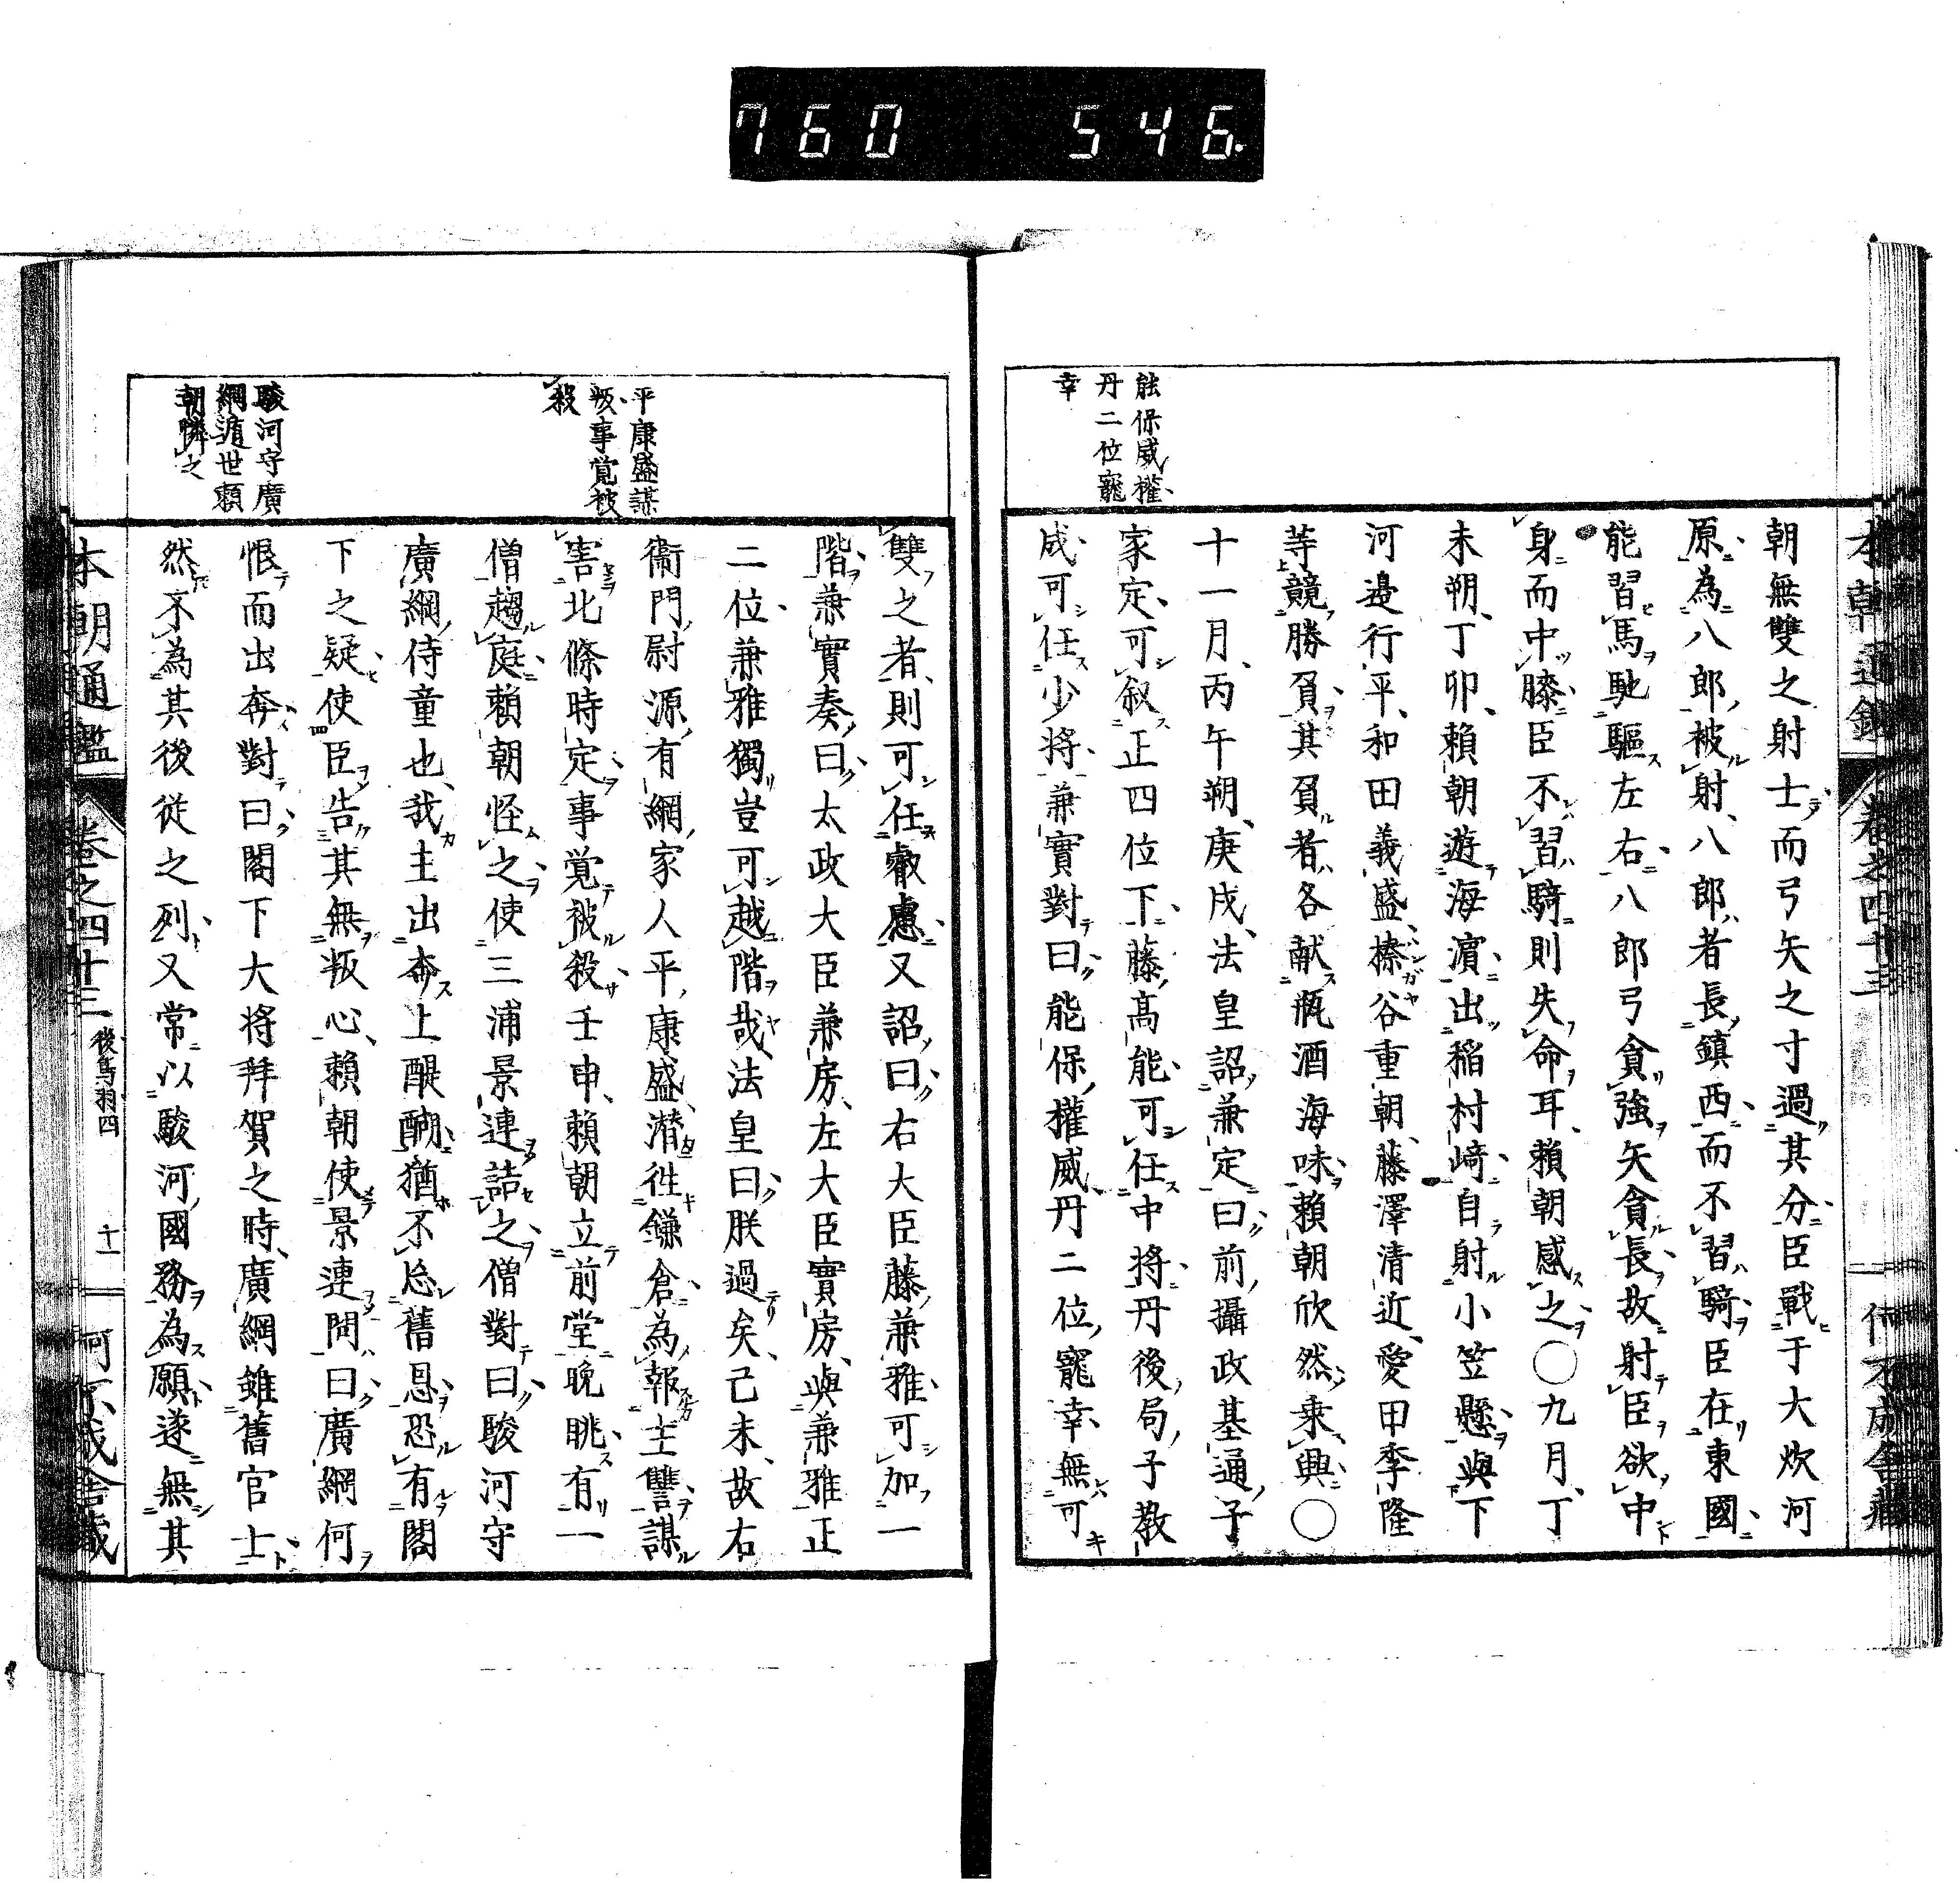 760 546.
本朝通鑑 卷之四十三 何不成舎藏
能保威權
丹二位寵
幸
朝無雙之射士而弓矢之寸過其分臣戰于大炊河
原為八郎被射八郎者長鎮西而不習騎臣在東國
能習馬馳驅左右八郎弓貪強矢貪長故射臣欲中
身而中膝臣不習騎則失命耳賴朝感之○九月丁
未朔丁卯賴朝遊海濵出稲村﨑自射小笠懸與下
河邉行平和田義盛榛谷重朝藤澤清近愛甲季隆
等競勝負其負者各献瓶酒海味賴朝欣然乗興○
十一月丙午朔庚戌法皇詔兼定曰前攝政基通子
家定可叙正四位下藤髙能可任中将丹後局子教
成可任少将兼實對曰能保權威丹二位寵幸無可
平康盛謀
叛事覚被
殺
駿河守廣
綱遁世頼
朝憐之
雙之者則可任叡慮又詔曰右大臣藤兼雅可加一
階兼實奏曰太政大臣兼房左大臣實房與兼雅正
二位兼雅獨豈可越階哉法皇曰朕過矣己未故右
衞門尉源有綱家人平康盛潜徃鎌倉為報主讐謀
害北條時定事覚被殺壬申賴朝立前堂晩眺有一
僧趨庭賴朝怪之使三浦景連詰之僧對曰駿河守
廣綱侍童也我主出奔上醍醐猶不忘舊恩恐有閣
下之疑使臣告其無叛心賴朝使景連問曰廣綱何
恨而出奔對曰閣下大将拜賀之時廣綱雖舊官士
然不為其後従之列又常以駿河國務為願遂無其
本朝通鑑 卷之四十三 後鳥羽四 十一 何不成舎藏